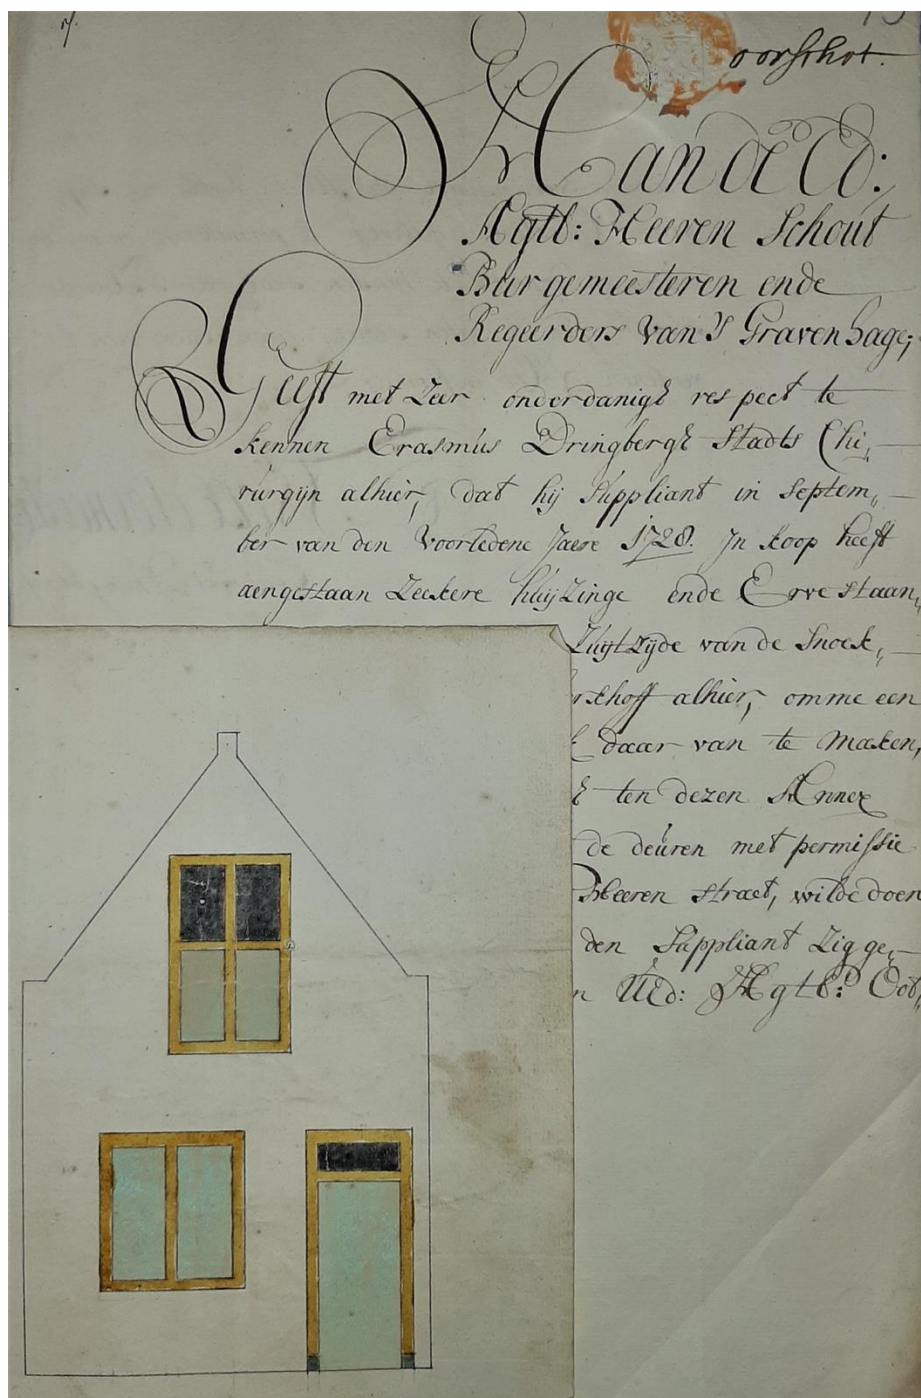 oorschot.
Aan de Ed:
Agtb: Heeren Schout
Burgemeesteren ende
Regeerders van 's Gravenhage;
Geeft met zeer onderdanigh respect te
kennen Erasmus Dringbergh Stadts Chi„
rurgijn alhier, dat hij Suppliant in Septem„
ber van den voorledene Jaere 1728. In koop heeft
aengestaan zeekere huijzinge ende Erve staan„
Zuijtzijde van de Snoek„
rschoff alhier, omme een
daar van te maken,
ten dezen Annex
de deuren met permissie
Heeren straet, wilde doen
den Suppliant zig ge„
n UEd: Agtb: Oot„